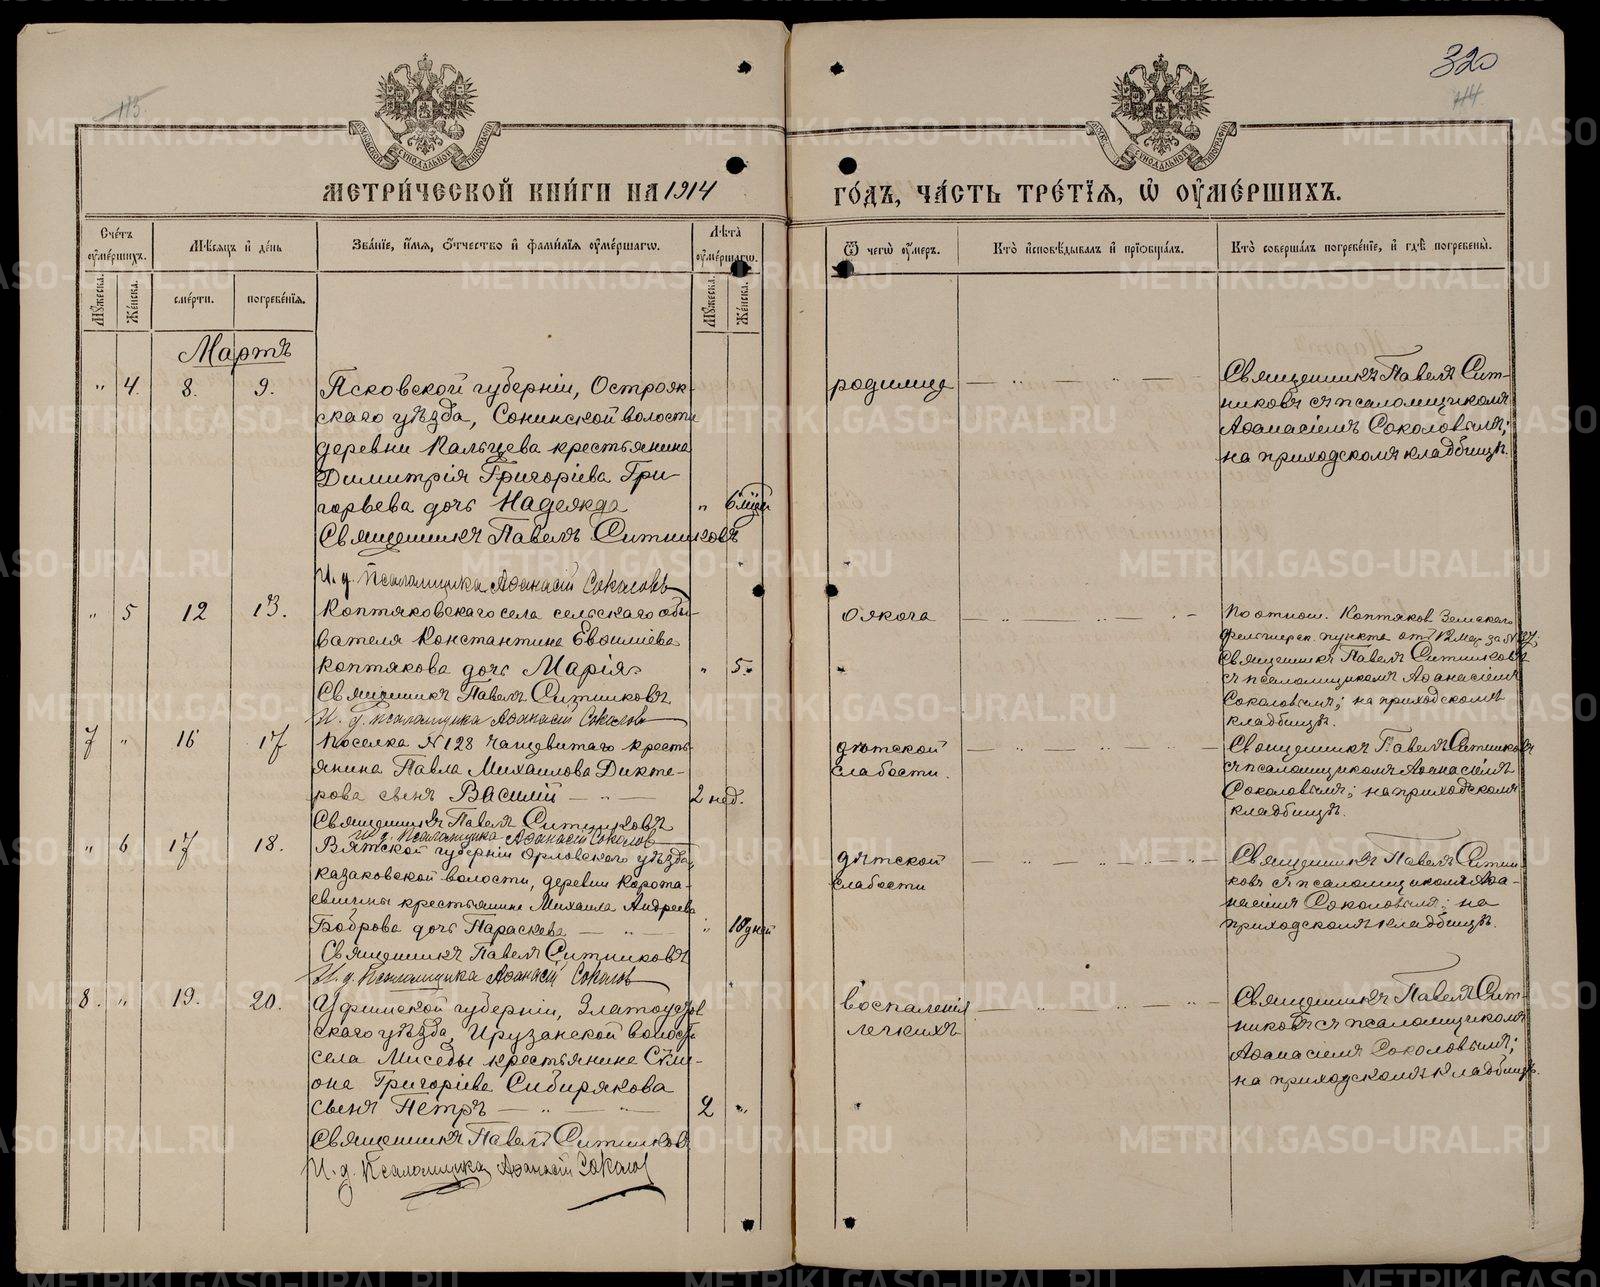 113.
320
114
МЕТРИ́ЧЕСКОЙ КНИ́ГИ НА 1914
ГО́ДЪ, ЧА́СТЬ ТРЕ́ТЇѦ, Ѡ҆ ОУ҆МЕ́РШИХЪ.
МОСКОВСКОЙ СѴНОДАЛЬНОЙ ТИПОГРАФІИ
Сче́тъ оу҆ме́ршихъ.
Мѣсяцъ и҆ де́нь
Зва́нїе, и҆́мѧ, ѻ҆́тчество и҆ фами́лїѧ оу҆ме́ршагѡ.
Лѣ́та оу҆ме́ршагѡ.
Ѿ чегѡ̀ оу҆́меръ.
Кто̀ и҆сповѣ́дывалъ и҆ прїѡбща́лъ.
Кто̀ соверша́лъ погребе́нїе, и҆ гдѣ̀ погребены̀.
Мꙋ́жеска. Же́нска.
сме́рти. погребе́нїѧ.
Мꙋ́жеска. Же́нска.
Мартъ
„ 4. 8. 9.
Псковской губерніи, Острояк-
скаго уѣзда, Сонинской волости
деревни Кальцева крестьянина
Димитрія Григоріева Гри-
горьева дочь Надежда „ 6 мѣс.
Священникъ Павелъ Ситниковъ
И. д. Псаломщика Аѳанасій Соколовъ
родимце — „ — „ —
Священникъ Павелъ Сит-
никовъ съ псаломщикомъ
Аѳанасіемъ Соколовымъ;
на приходскомъ кладбищѣ.
„ 5 12 13.
Коптяковскаго села сельскаго обы-
вателя Константина Евѳиміева
Коптякова дочь Марія „ 5.
Священникъ Павелъ Ситниковъ
И. д. псаломщика Аѳанасій Соколовъ
ожога
По отнош. Коптяков. Земскаго
фельдшерск. пункта от 12 мар. за №
Священникъ Павелъ Ситниковъ
съ псаломщикомъ Аѳанасіемъ
Соколовымъ; на приходскомъ
кладбищѣ.
7 „ 16 17
Поселка №128 крестья-
янина Павла Михаилова Дикте-
рова сынъ Василій — „ — 2 нед.
Священникъ Павелъ Ситниковъ
И. д. Псаломщика Аѳанасій Соколовъ
дѣтской
слабости.
Священникъ Павелъ Ситниковъ
съ псаломщикомъ Аѳанасіемъ
Соколовымъ; на приходскомъ
кладбищѣ.
„ 6 17 18.
Вятской губерніи Орловскаго уѣзда,
Казаковской волости, деревни Корота-
евщины крестьянина Михаила Андреева
Боброва дочь Параскева — „ — „ 18 дней
Священникъ Павелъ Ситниковъ
И. д. Псаломщика Аѳанасій Соколовъ
дѣтской
слабости
Священникъ Павелъ Ситни-
ковъ съ псаломщикомъ Аѳа-
насіемъ Соколовымъ; на
приходскомъ кладбищѣ.
8. „ 19. 20.
Уфимской губерніи, Златоустов
скаго уѣзда, Ирузанской волости
села Миседы крестьянина Сѵме-
она Григоріева Сибирякова
сынъ Петръ — „ — 2 „
Священникъ Павелъ Ситниковъ
И. д. Псаломщика Аѳанасій Соколовъ
воспаленія
легкихъ
Священникъ Павелъ Сит-
никовъ съ псаломщикомъ
Аѳанасіемъ Соколовымъ;
на приходскомъ кладбищѣ.
METRIKI.GASO-URAL.RU